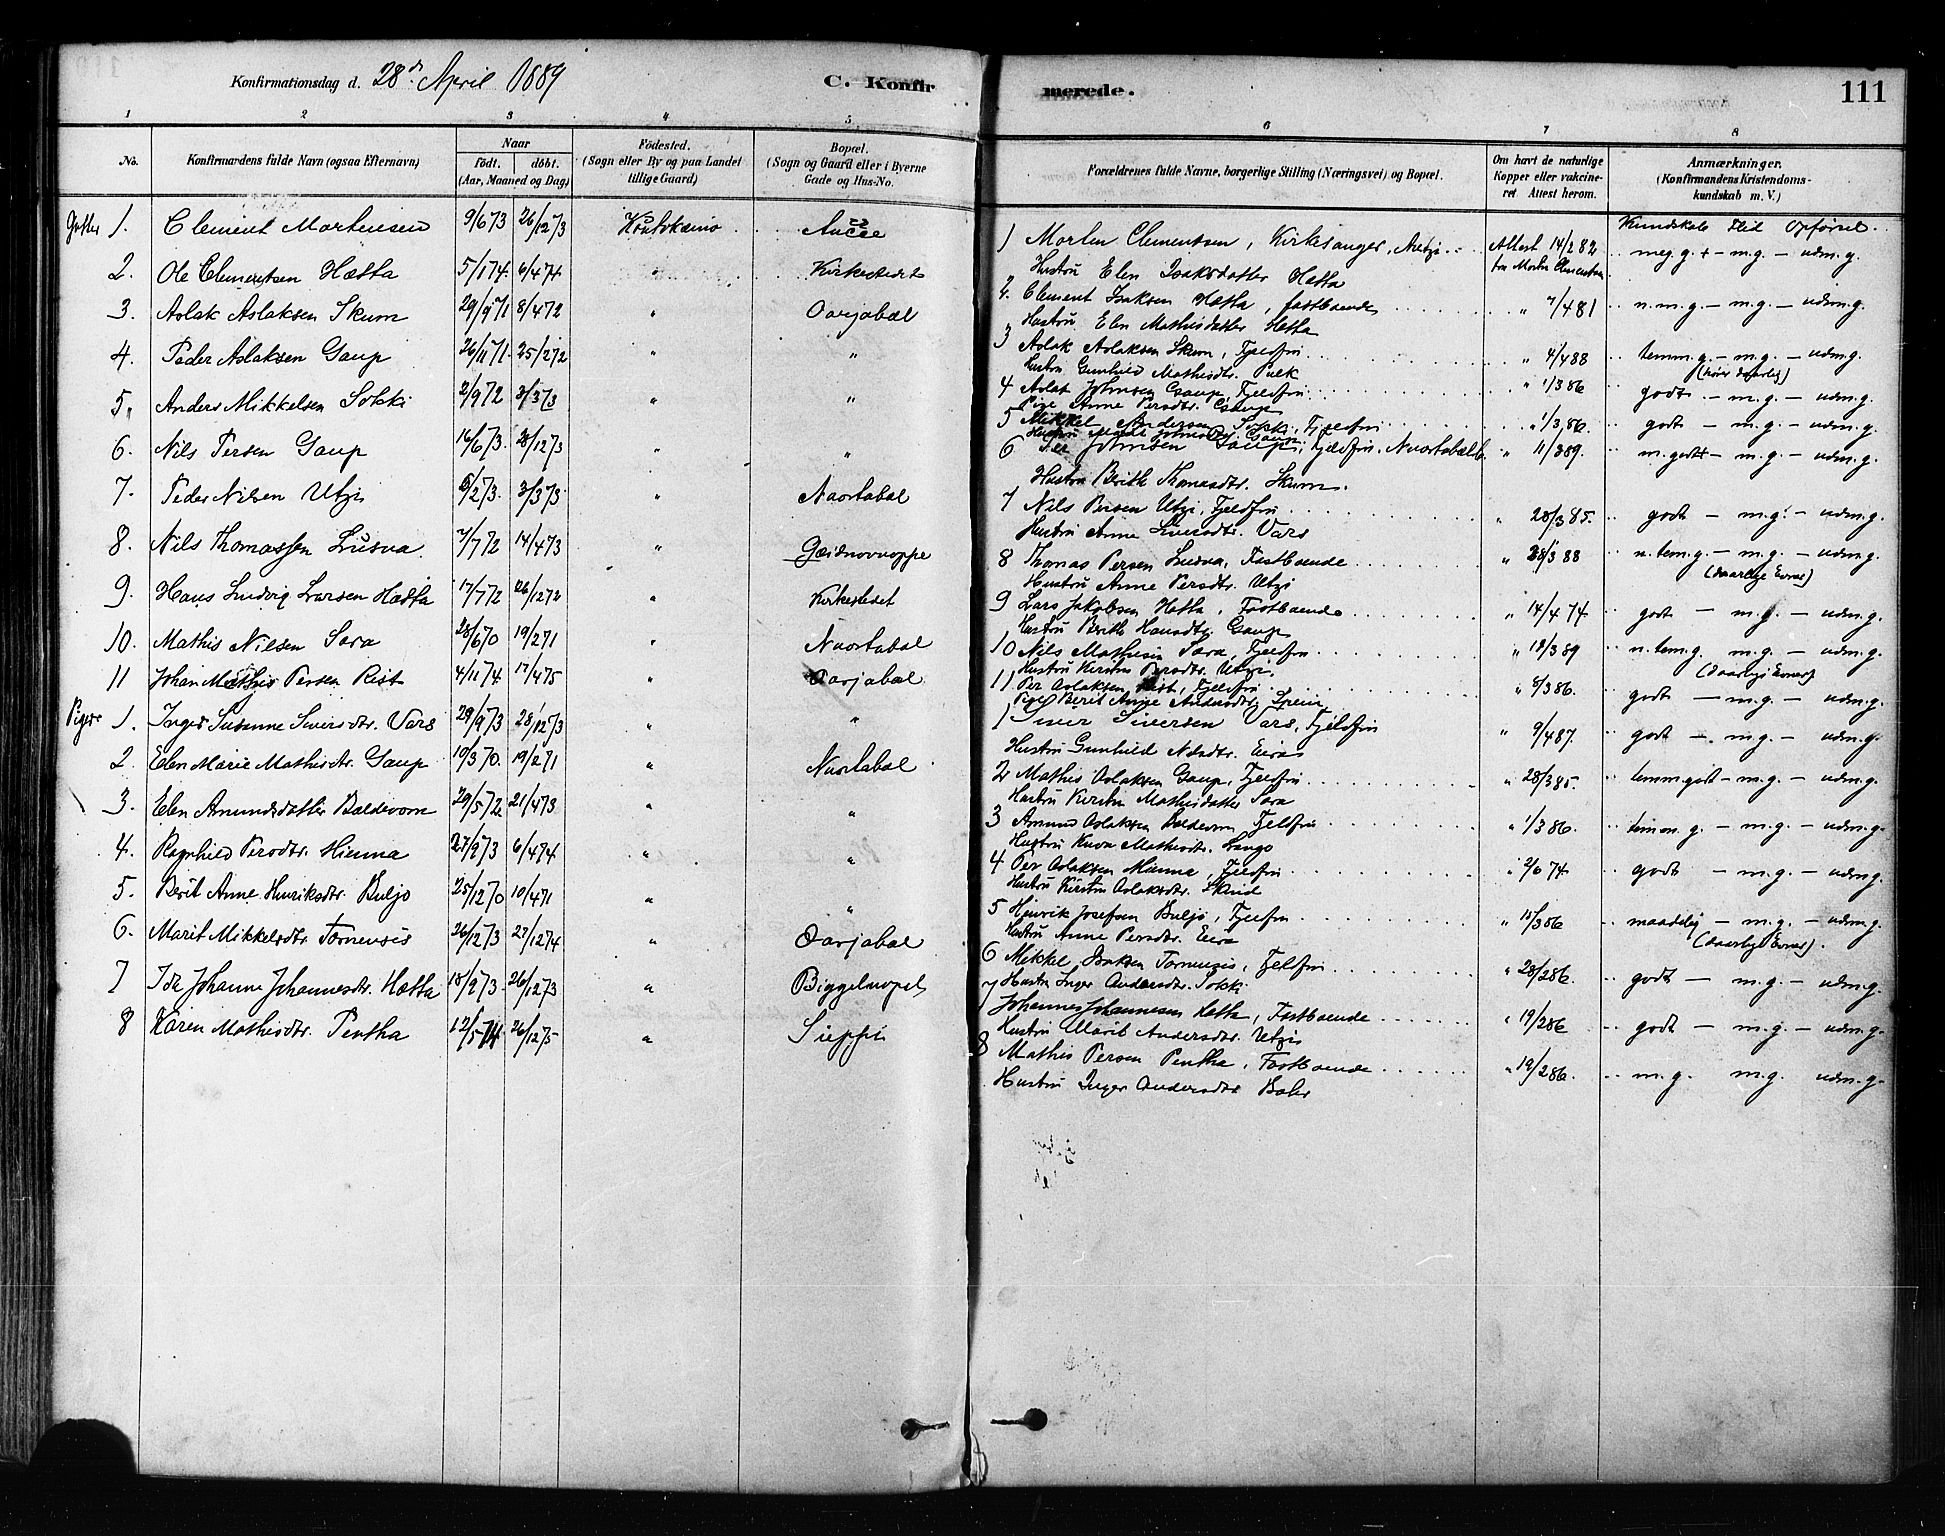 Konfirmationsdag d. 28de April 1889
C. Konfir
1 2 3 4 5
No. Konfirmandens fulde Navn (ogsaa Efternavn) Naar født. døbt. (Aar, Maaned og Dag) Fødested. (Sogn eller By og paa Landet tillige Gaard) Bopæl. (Sogn og Gaard eller i Byerne Gade og Hus-No.
Gutter 1. Clement Mortensen 9/6 73 26/12 73 Koutokæino
2. Ole Clementsen Hætta 5/1 74. 6/4 74 " Kirkestedet
3. Aslak Aslaksen Skum 29/9 71 8/4 72 " Oarjabæl
4. Peder Aslaksen Gaup 26/11 71. 25/2 72 " "
5. Anders Mikkelsen Sokki 2/9 72 3/3 73 " "
6. Nils Persen Gaup 16/6 73. 28/12 73 " "
7. Peder Nilsen Utzi /2 73. 3/3 73 " Nuortabæl
8. Nils Thomassen Lusva. 7/7 72 14/4 73 "
9. Hans Ludvig Larsen Hætta 17/7 72 26/12 72 " Kirkestedet
10. Mathis Nilsen Sara 28/6 70 19/2 71 " Nuortabæl
11 Johan Mathis Persen Rist 4/11 74 17/4 75 " Oarjabæl
Piger 1. Inger Susanne Siversdtr. Vars 29/9 73 28/12 73 " "
2. Elen Marie Mathisdtr. Gaup 10/3 70. 19/2 71 " Nuortabæl
3. Elen Amundsdatter Baldevom 29/5 72 21/4 73 " "
4. Ragnhild Persdtr. Mienna 27/2 73 6/4 74 " "
5. Berit Anne Henriksdtr. Buljo 25/12 70 10/4 71 " "
6. Marit Mikkelsdtr. Tornensis 26/12 73 27/12 74 " Oarjabæl
7 Ida Johanne Johannesdtr. Hætta 18/9 73. 26/12 73 "
8 Karen Mathisdtr. Pentha 12/5 74 26/12 75 " Sieppi
merede.
111
6 7 8
Forældrenes fulde Navne, borgerlige Stilling (Næringsvei) og Bopæl. Om havt de naturlige Kopper eller vakcineret Attest herom. Anmærkninger. (Konfirmandens Kristendomskundskab m. V.)
Kundskab Flid Opførsel.
1 Morten Clementsen, Kirkesanger, Attest 14/2 82 meg. g. + – m.g. – udm.g.
Hustru Elen Isaksdatter Hætta fra Morten Clementsen
2. Clement Isaksen Hætta, fastboende " 7/4 81 n.m.g. – m.g. – udm.g.
Hustru Elen Mathisdatter Hætta
3 Aslak Aslaksen Skum, Fjeldfin " 4/4 88 temm.g. – m.g. – udm.g.
Hustru Gunhild Mathisdtr. Pulk (hører daarlig)
4 Aslak Johnsen Gaup, Fjeldfin " 1/3 86 godt – m.g. – udm.g.
Pige Anne Persdtr. Gaup
5 Mikkel Andersen Sokki, Fjeldfin " 1/3 86. godt – m.g. – udm.g.
6 Per Johnsen Gaup, Fjeldfin, Nuortabæl " 11/3 89. m. godt – m.g. – udm.g.
Hustru Brith Thomasdtr. Skum.
7 Nils Persen Utzi, Fjeldfin " 28/3 85. godt – m.g. – udm.g.
Hustru Anne Siversdtr. Vars
8 Thomas Persen Lusva, Fastboende " 28/3 88 n. tem.g. – m.g. – udm.g.
Hustru Anne Persdtr. Utzi (daarlige Evner)
9 Lars Jakobsen Hætta, Fastboende " 14/4 74. godt – m.g. – udm.g.
Hustru Brith Hansdtr. Gaup
10 Nils Mathisen Sara, Fjeldfin " 18/3 89 n. tem.g. m.g. – udm.g.
Hustru Kirsten Persdtr. Utzi (daarlige Evner)
11 Per Aslaksen Rist, Fjeldfin " 8/3 86. godt – m.g. – udm.g.
Pige Berit Anne Andersdtr. Spein
1 Siver Siversen Vars, Fjeldfin " 9/4 87. godt – m.g. – udm.g.
Hustru Gunhild Nilsdtr. Eira
2 Mathis Aslaksen Gaup, Fjeldfin " 28/3 85. temm. godt – m.g. – udm.g.
Hustru Kirsten Mathisdatter Sara
3 Amund Aslaksen Baldevom Fjeldfin " 1/3 86. temm.g. – m.g. – udm.g.
Hustru Mathisdtr.
4 Per Aslaksen Mienna, Fjeldfin " 2/6 74 godt – m.g. – udm.g.
Hustru Kirsten Aslaksdtr.
5 Henrik Josefsen Buljo, Fjeldfin " 15/3 86 maadelig – m.g. – udm.g.
Hustru Anne Persdtr. Eira (daarlige Evner).
6 Mikkel Isaksen Tornensis, Fjeldfin " 28/2 86 godt – m.g. – udm.g.
Hustru Inger Andersdtr. Sokki
7 Johannes Johannessen Hætta, Fastboende " 19/2 86 godt – m.g. – udm.g.
Hustru Marit Andersdtr. Utzi
8 Mathis Persen Pentha, Fastboende " 19/2 86. m.g. m.g. udm.g.
Hustru Inger Andersdtr. Bahr